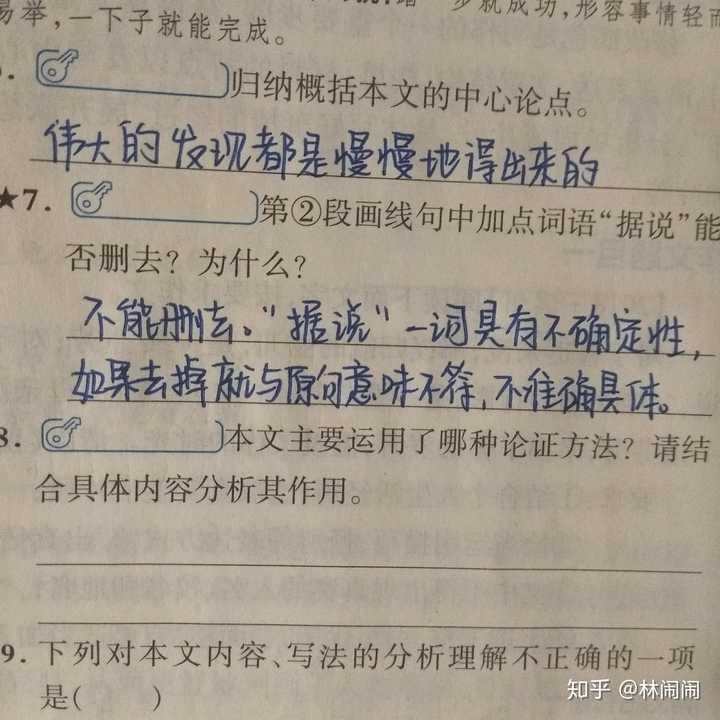 易举,一下子就能完成。
步就成功,形容事情轻而
归纳概括本文的中心论点。
伟大的发现都是慢慢地得出来的
★7.
第②段画线句中加点词语“据说”能
否删去?为什么?
不能删去。“据说”一词具有不确定性,
如果去掉就与原句意味不符,不准确具体。
8.
本文主要运用了哪种论证方法?请结
合具体内容分析其作用。
9.下列对本文内容、写法的分析理解不正确的一项
是( )
知乎 @林闹闹